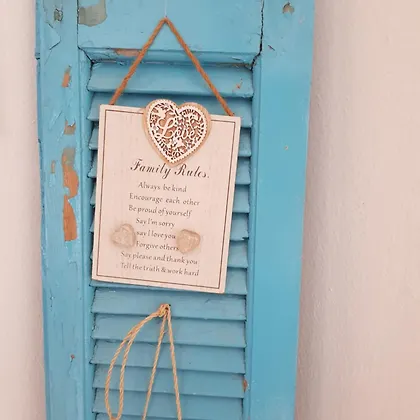 Love
Family Rules.
Always be kind
Encourage each other
Be proud of yourself
Say I'm sorry
say I love you
Forgive others
Say please and thank you
Tell the truth & work hard